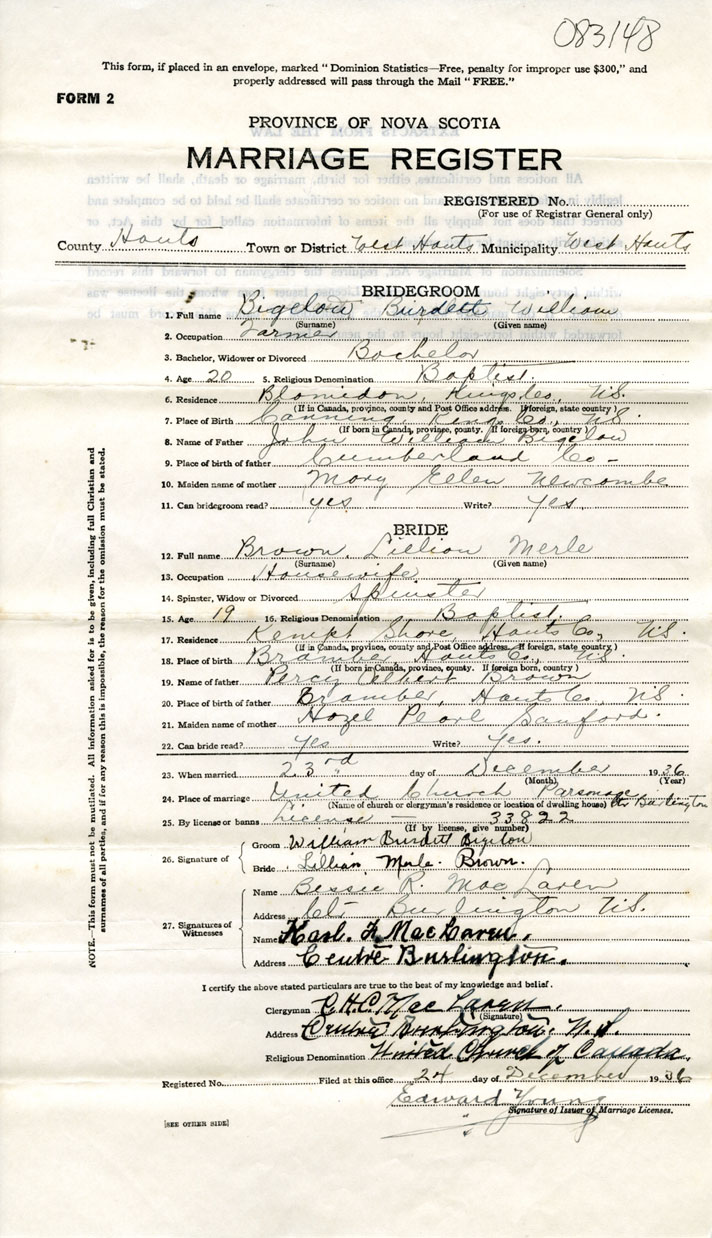 083148
This form, if placed in an envelope, marked "Dominion Statistics—Free, penalty for improper use $300," and
properly addressed will pass through the Mail "FREE."
FORM 2
PROVINCE OF NOVA SCOTIA
MARRIAGE REGISTER
REGISTERED No.
(For use of Registrar General only)
County Hants Town or District West Hants Municipality West Hants
BRIDEGROOM
1. Full name Bigelow Burdett William
(Surname) (Given name)
2. Occupation Farmer
3. Bachelor, Widower or Divorced Bachelor
4. Age 20 5. Religious Denomination Baptist.
6. Residence Blomidon, Kings Co, N.S.
(If in Canada, province, county and Post Office address. If foreign, state country)
7. Place of Birth Canning, Kings Co., N.S.
(If born in Canada, province, county. If foreign born, country)
8. Name of Father John William Bigelow
9. Place of birth of father Cumberland Co-
10. Maiden name of mother Mary Ellen Newcombe
11. Can bridegroom read? yes Write? Yes.
BRIDE
12. Full name Brown, Lillian Merle
(Surname) (Given name)
13. Occupation Housewife
14. Spinster, Widow or Divorced Spinster
15. Age 19 16. Religious Denomination Baptist.
17. Residence Kempt Shore, Hants Co, N.S.
(If in Canada, province, county and Post Office address. If foreign, state country.)
18. Place of birth Bramber, Hants Co., N.S.
(If born in Canada, province, county. If foreign born, country)
19. Name of father Percy Albert Brown
20. Place of birth of father Bramber, Hants Co, N.S
21. Maiden name of mother Hazel Pearl Sanford.
22. Can bride read? Yes Write? Yes.
23. When married 23rd day of December 1936
(Month) (Year)
24. Place of marriage United Church Parsonage Ctr Burlington
(Name of church or clergyman's residence or location of dwelling house)
25. By license or banns License — 33822
(If by license, give number)
26. Signature of
Groom William Burdett Bigelow
Bride Lillian Merle Brown.
27. Signatures of Witnesses
Name Bessie R. MacLaren
Address Ctr Burlington N.S.
Name Karl. F. MacLaren.
Address Centre Burlington.
I certify the above stated particulars are true to the best of my knowledge and belief.
Clergyman MacLaren.
(Signature)
Address Centre Burlington, N.S.
Religious Denomination United Church of Canada.
Registered No. Filed at this office 24 day of December 1936
Edward Young
Signature of Issuer of Marriage Licenses.
[SEE OTHER SIDE]
NOTE.—This form must not be mutilated. All information asked for is to be given, including full Christian and
surnames of all parties, and if for any reason this is impossible, the reason for the omission must be stated.